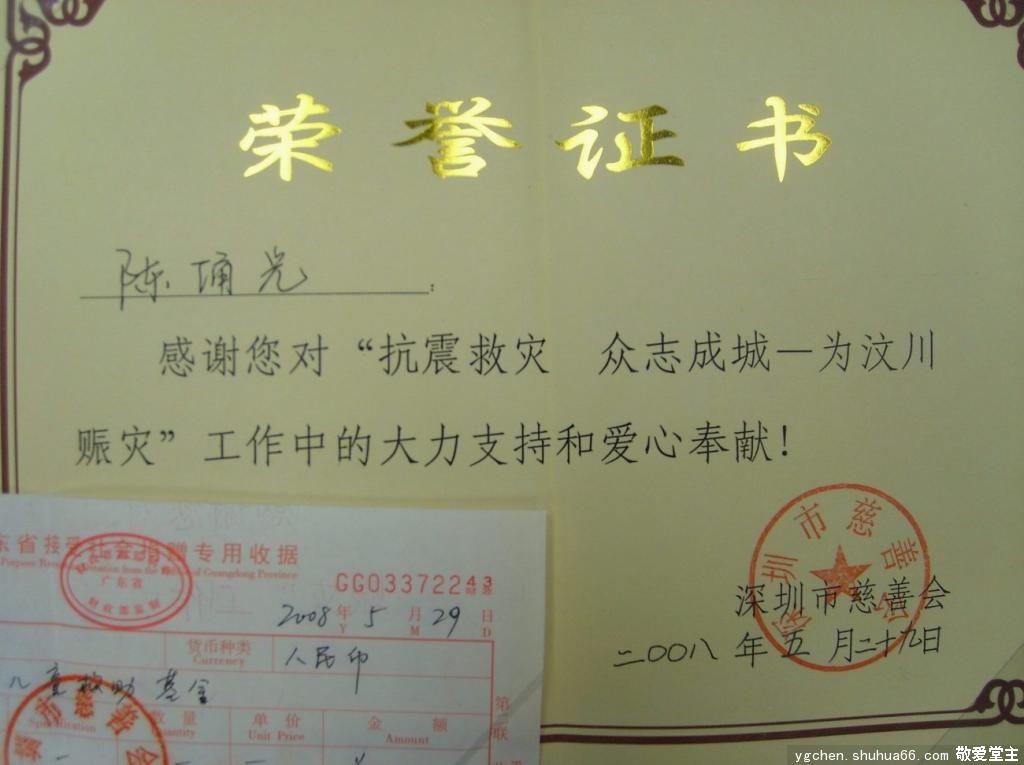 荣誉证书
陈埇光：
感谢您对“抗震救灾 众志成城—为汶川
赈灾”工作中的大力支持和爱心奉献！
深圳市慈善会
深圳市慈善会
二〇〇八年五月二十九日
东省接受社会捐赠专用收据
of Guangdong Province
广东省
财政部监制
GG03372243
2008年5月29日
Y M D
货币种类
Currency
人民币
儿童救助基金
Specification
数量
Quantity
单价
Unit Price
金额
Amount
第二联
市慈善会
ygchen.shuhua66.com 敬爱堂主